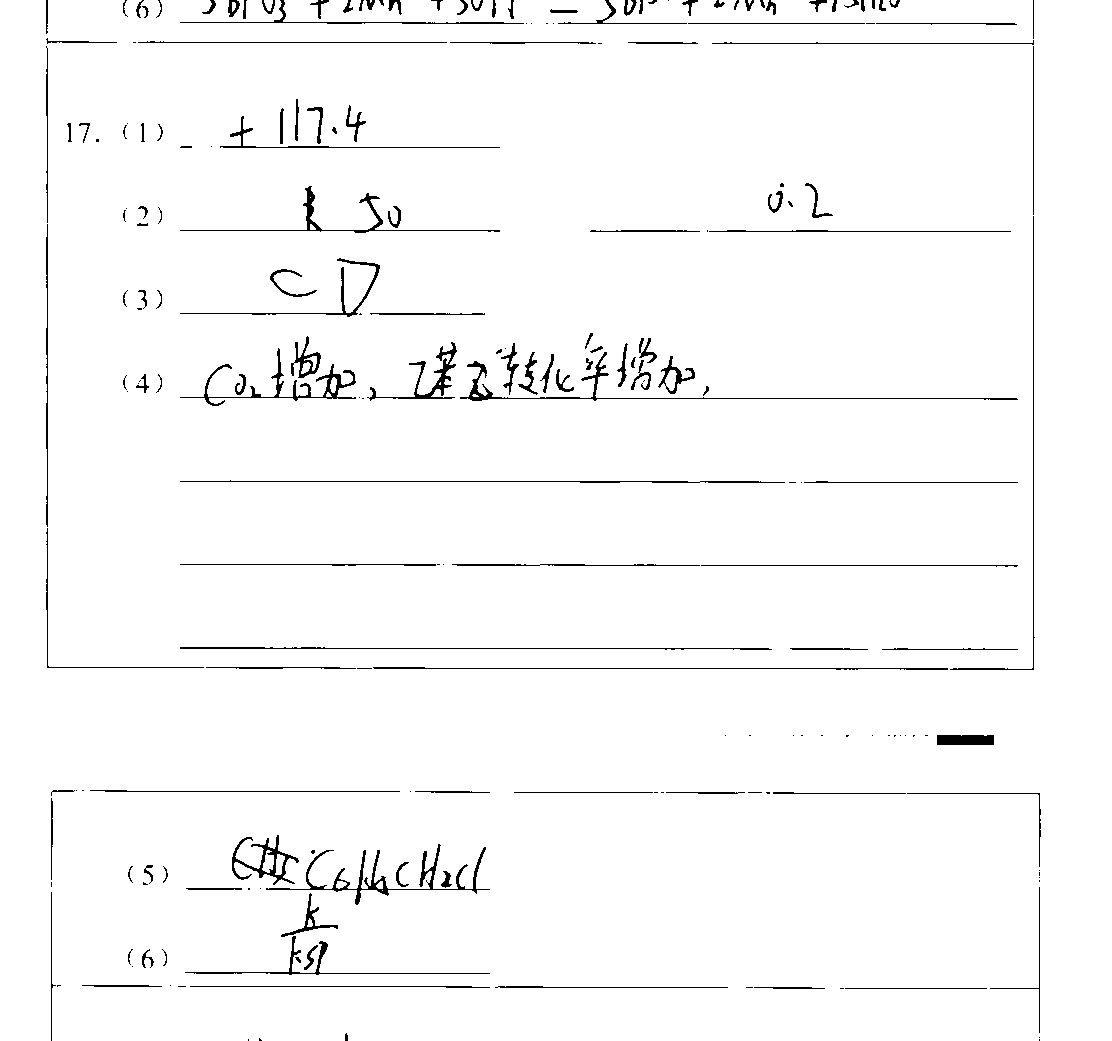 (6)
17. (1) +117.4
(2) 50 0.2
(3) CD
(4) CO₂增加，乙苯 转化率增加，
(5) C6H6CH2Cl
(6) k/ksp